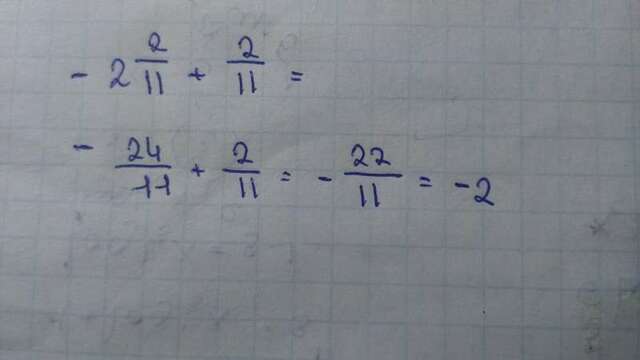 - 2 2/11 + 2/11 =
- 24/11 + 2/11 = - 22/11 = -2